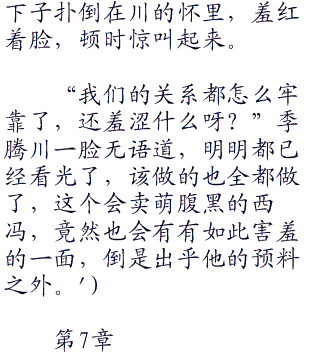 下子扑倒在川的怀里，羞红
着脸，顿时惊叫起来。
“我们的关系都怎么牢
靠了，还羞涩什么呀？”季
腾川一脸无语道，明明都已
经看光了，该做的也全都做
了，这个会卖萌腹黑的西
冯，竟然也会有有如此害羞
的一面，倒是出乎他的预料
之外。')
第7章